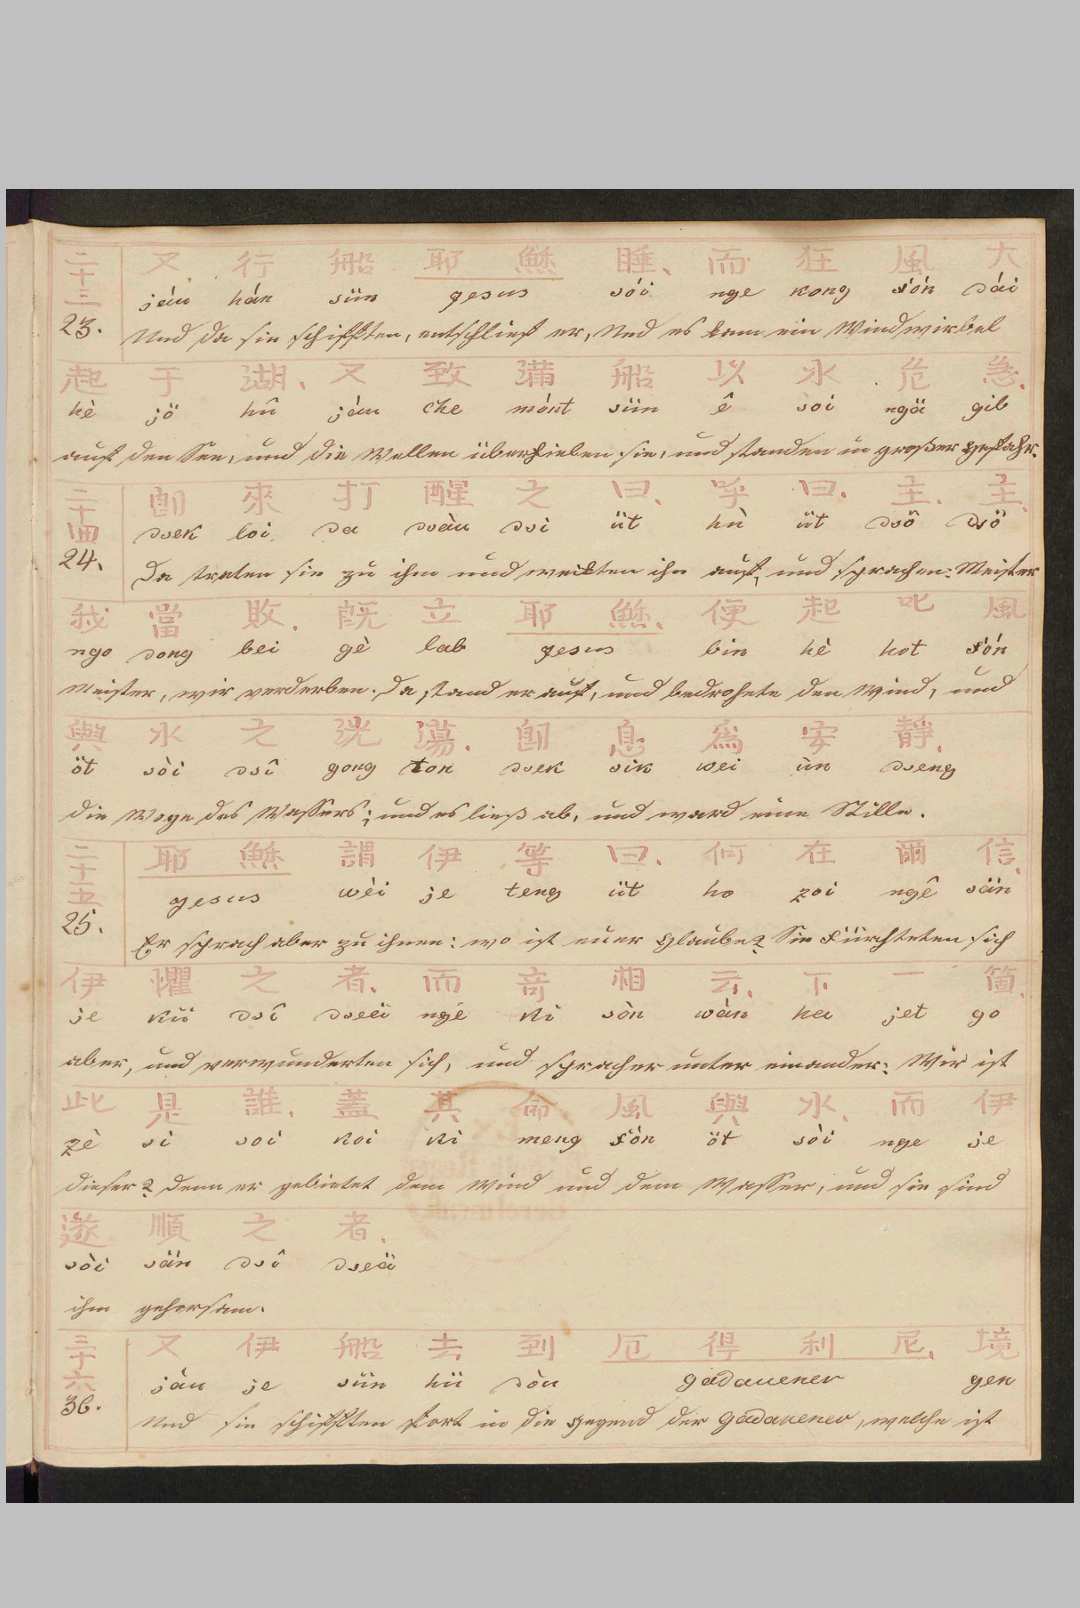 二十三 又 行 船 耶 穌 睡、 而 狂 風 大
23. jáu hán sün Jesus sói nge kong fón dái
Und da sie schifften, entschlief er, Und es kam ein Windwirbel
起 于 湖、 又 致 滿 船 以 水 危 急、
hè jö hû jáu che mónt sün ê soi ngä gib
auf den See, und die Wellen überhieben sie, und standen in großer Gefahr.
二十四 卽 來 打 醒 之 曰、 呼 曰、 主、 主、
24. dsek loi da dsàu dsi üt hù üt dsô dsô
Da traten sie zu ihm und weckten ihn auf, und sprachen: Meister
我 當 敗、 旣 立 耶 穌、 便 起 叱 風
ngo dong bei gè lab Jesus bin hè hot fón
Meister, wir verderben. Da stand er auf, und bedrohete den Wind, und
與 水 之 洸 蕩、 卽 息 為 安 靜、
öt sòi dsî gong ton dsek sik wei ùn dseng
die Woge des Wassers; und es ließ ab, und ward eine Stille.
二十五 耶 穌 謂 伊 等 曰、 何 在 爾 信、
25. Jesus wèi je teng üt ho zoi ngê sän
Er sprach aber zu ihnen: wo ist euer Glaube? Sie fürchteten sich
伊 懼 之 者、 而 竒 相 云、 下 一 箇、
je kü dsî dseä ngé ki sòn wàn hea jet go
aber, und verwunderten sich, und sprachen unter einander: Wer ist
此 是 誰、 蓋 其 命 風 與 水、 而 伊
zè si soi koi ki meng fón öt sòi nge je
dieser? denn er gebietet dem Wind und dem Wasser, und sie sind
遂 順 之 者、
sòi sän dsî dseä
ihm gehorsam.
三十六 又 伊 船 去 到 厄 得 利 尼、 境
36. jàu je sün hü dòu gadauener gen
Und sie schifften fort in die Gegend der Gadauener, welche ist